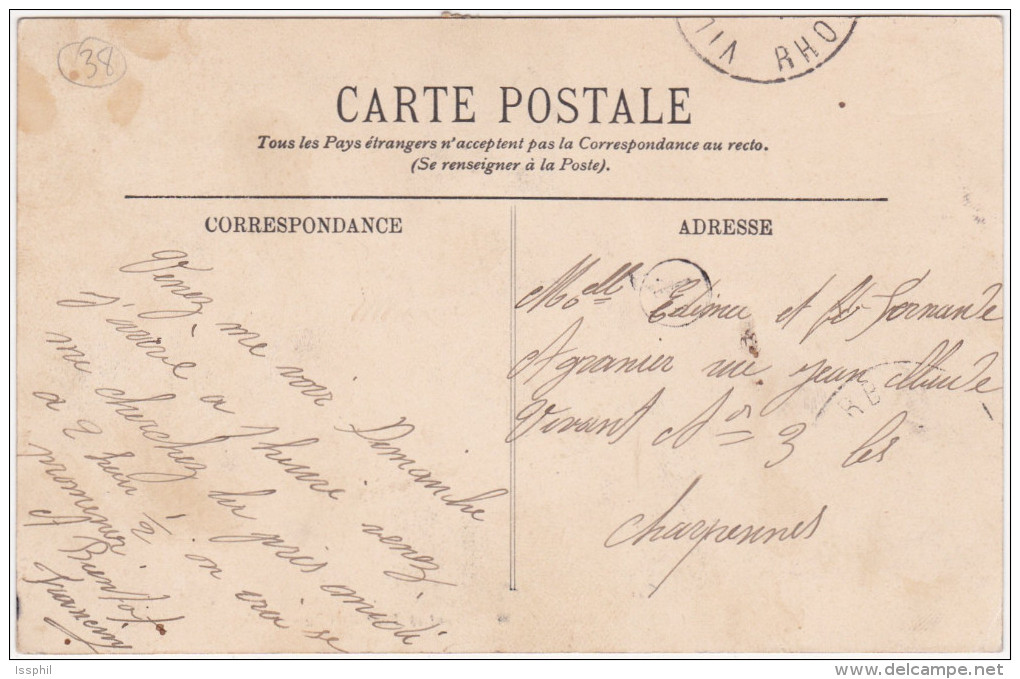 38
VIL RHO
CARTE POSTALE
Tous les Pays étrangers n'acceptent pas la Correspondance au recto.
(Se renseigner à la Poste).
CORRESPONDANCE
Venez me voir Dimanche
J'arive a 1 heure venez
me cherchez les pris midi
a 2 heur ½ on irai se
promener
A Bientôt
Francine
ADRESSE
Melle et Fernande
Agranier rue jean Claude
Vivant No 3 les
Charpennes
RBE
Issphil
delcampe.net